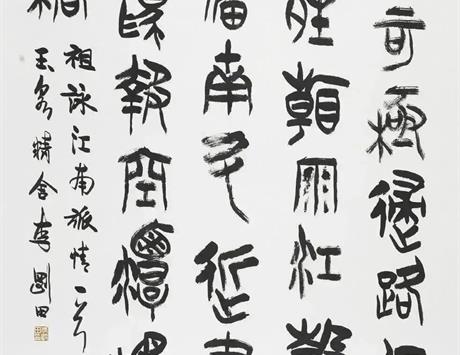 可極歸路但
晴看雨江聲
留南斗近書
爲報空潭橘
橋
祖詠江南旅情一首
玉泉精舍李剛田